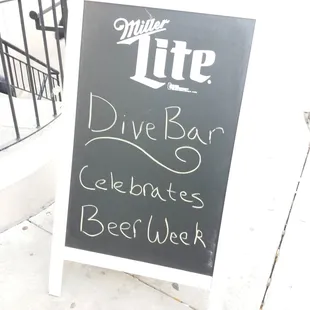 Miller
Lite
Dive Bar
Celebrates
Beer Week